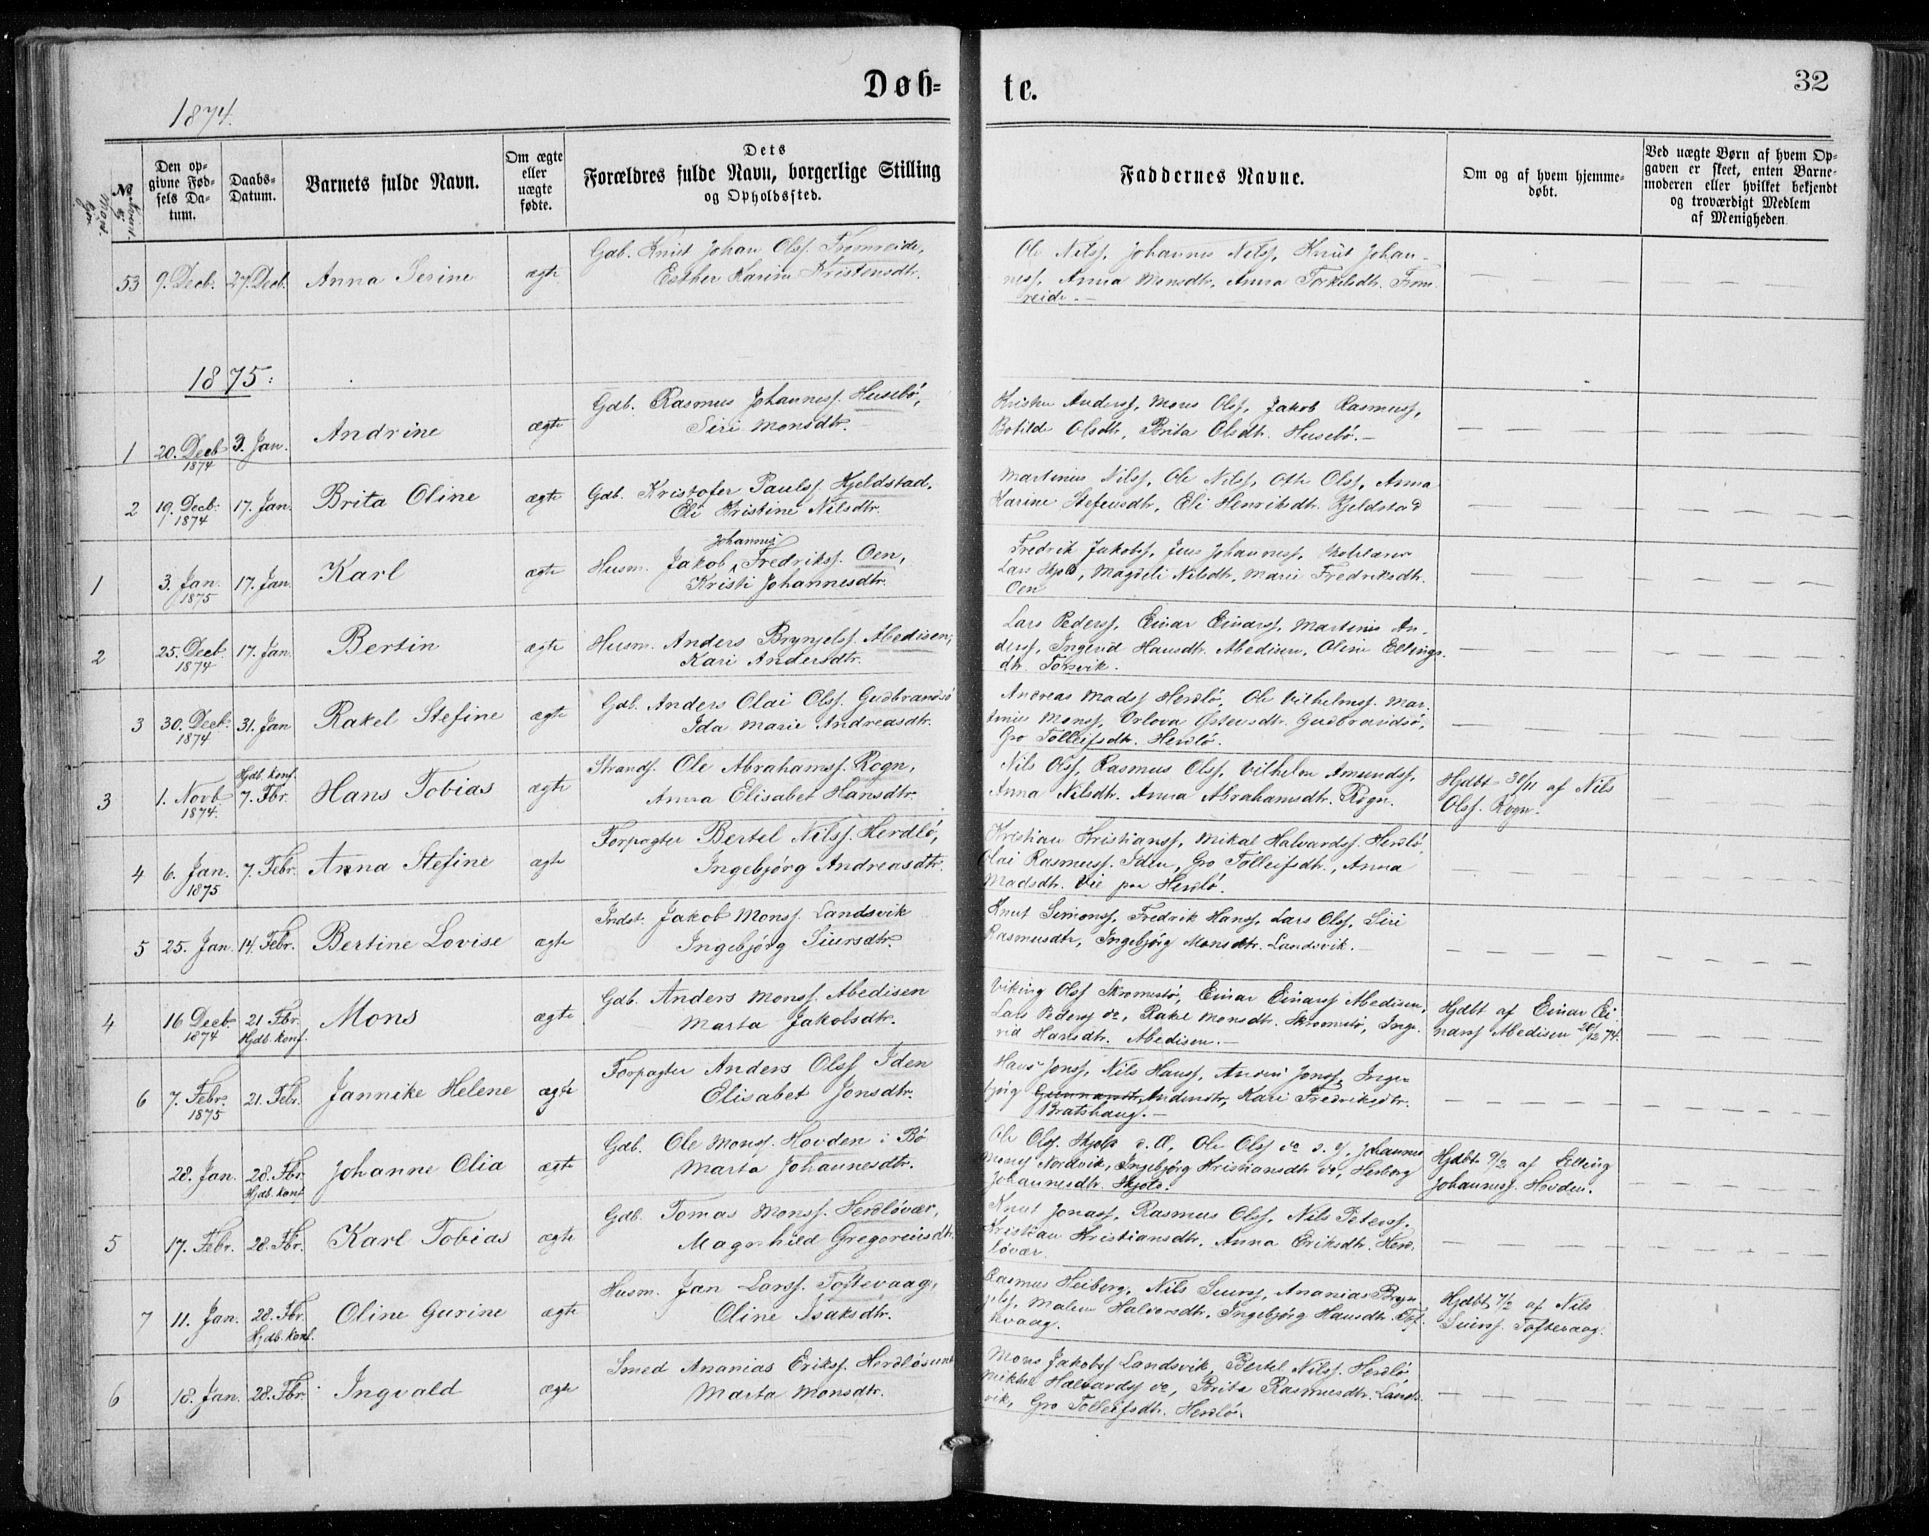 Døb=
te.
32
1874.
No
Den op=
givne Fød=
sels Da=
tum.
Daabs=
Datum.
Barnets fulde Navn.
Om ægte
eller
uægte
fødte.
Dets
Forældres fulde Navn, borgerlige Stilling
og Opholdssted.
Faddernes Navne.
Om og af hvem hjemme=
døbt.
Ved uægte Børn af hvem Op=
gaven er skeet, enten Barne=
moderen eller hvilket bekjendt
og troværdigt Medlem
af Menigheden.
53 9. Decb. 27. Decb. Anna Serine ægte
Gdb. Knut Johan Olsf. Fromreide,
Esther Karine Kristensdtr.
Ole Nilsf, Johannes Nilsf, Knut Johan-
nesf, Anna Monsdtr, Anna Torkelsdtr. From
reide. —
1875:
1 20. Decb 1874 3. Jan. Andrine ægte
Gdb. Rasmus Johannesf. Husebö,
Siri Monsdtr.
Kristen Andersf, Mons Olsf, Jakob Rasmusf,
Botilde Olsdtr, Brita Olsdtr. Husebö. —
2 19. Decb. 1874 17. Jan. Brita Oline ægte
Gdb. Kristofer Paulsf. Kjeldstad,
Eli Kristine Nilsdtr.
Martinus Nilsf, Ole Nilsf, Otto Olsf, Anna
Karine Stefensdtr, Eli Henriksdtr. Kjeldstad
1 3. Jan. 1875 17. Jan Karl ægte
Johannes
Husm. Jakob Fredriksf. Oen,
Kristi Johannesdtr.
Fredrik Jakobsf, Jens Johannesf,
Lars Skjold, Magdeli Nilsdtr, Marie Fredriksdtr.
Oen
2 25. Decb. 1874 17. Jan. Bertin ægte
Husm. Anders Brynjelsf. Abedisen,
Kari Andersdtr.
Lars Pedersf, Einar Einarsf, Martinus An-
dersf, Ingerid Hansdtr. Abedisen, Oline Ellings
dtr. Torsvik.
3 30. Decb. 1874 31. Jan Rakel Stefine ægte
Gdb. Anders Olai Olsf. Gudbrandsö
Ida Marie Andreasdtr.
Andreas Madsf Herdlö, Ole Vilhelmsf. Mar-
tinus Monsf, Orlova Östensdtr. Gudbrandsö,
Gro Tolleifsdtr. Herdlö.
3 1. Novb 1874. Hjdb. konf. 7. Fbr. Hans Tobias ægte
Strands. Ole Abrahamsf. Rogn,
Anna Elisabet Hansdtr.
Nils Olsf, Rasmus Olsf, Vilhelm Amundsf,
Anna Nilsdtr. Anna Abrahamsdtr. Rogn.
Hjdbt 30/11 af Nils
Olsf. Rogn.
4 6. Jan. 1875 7. Febr. Anna Stefine ægte
Forpagter Bertel Nilsf. Herdlö,
Ingebjörg Andreasdtr.
Kristian Kristiansf, Mikal Halvardsf. Herdlö
Olai Rasmusf. Iden, Gro Tolleifsdtr., Anna
Madsdtr. Vie paa Herdlö.
5 25. Jan. 14. Febr. Bertine Lovise ægte
Indst. Jakob Monsf. Landsvik
Ingebjörg Siursdtr.
Knut Simonsf, Fredrik Hansf, Lars Olsf, Siri
Rasmusdtr, Ingebjörg Monsdtr. Landsvik. —
4 16 Decb. 1874 21. Fbr. Hjdb. konf. Mons ægte
Gdb. Anders Monsf. Abedisen
Marta Jakobsdtr.
Viking Olsf Skromeslö, Einar Einarsf Abedisen,
Lars Pedersf do, Rakel Monsdtr. Skromeslö, Inge
rid Hansdtr. Abedisen. —
Hjdbt af Einar Ei-
narsf Abedisen 20/12 74.
6 7. Febr. 1875 21. Febr. Jannike Helene ægte
Forpagter Anders Olsf Iden
Elisabet Jonsdtr.
Hans Jonsf, Nils Hansf, Andr. Jonsf, Inge-
björg Andersdtr, Kari Fredriksdtr.
Bratshaug. —
28. Jan. 28. Fbr. Hjdb. konf Johanne Olia ægte
Gdb. Ole Monsf. Hovden i Bö
Marta Johannesdtr.
Ole Olsf. Skjold d. Æ., Ole Olsf do d. y, Johannes
Monsf Nordvik, Ingebjörg Kristiansdtr do, Herborg
Johannesdtr. Skjold.
Hjdbt 9/2 af Elling
Johannesf. Hovden.
5 17. Febr. 28. Fbr. Karl Tobias ægte
Gdb. Tomas Monsf. Herdlövær,
Magnhild Gregoriusdtr.
Knut Jonasf, Rasmus Olsf, Nils Petersf.
Kristian Kristiansdtr. Anna Eriksdtr. Herd-
lövær.
7 11. Jan. 28. Fbr. Hjdb. konf. Oline Gurine ægte
Husm. Jan Larsf. Toftevaag,
Oline Isaksdtr.
Rasmus Heiberg, Nils Siursf, Ananias Bryn-
jelsf, Malene Halvorsdtr, Ingebjörg Hansdtr. Tof-
tevaag.
Hjdbt 7/2 af Nils
Siursf. Toftevaag.
6 18. Jan. 28. Fbr. Ingvald ægte
Smed Ananias Eriksf. Herdlösund
Marta Monsdtr.
Mons Jakobsf Landsvik, Bertel Nilsf. Herdlö,
Mikkel Halvardsf do, Brita Rasmusdtr. Lands-
vik, Gro Tolleifsdtr. Herdlö.